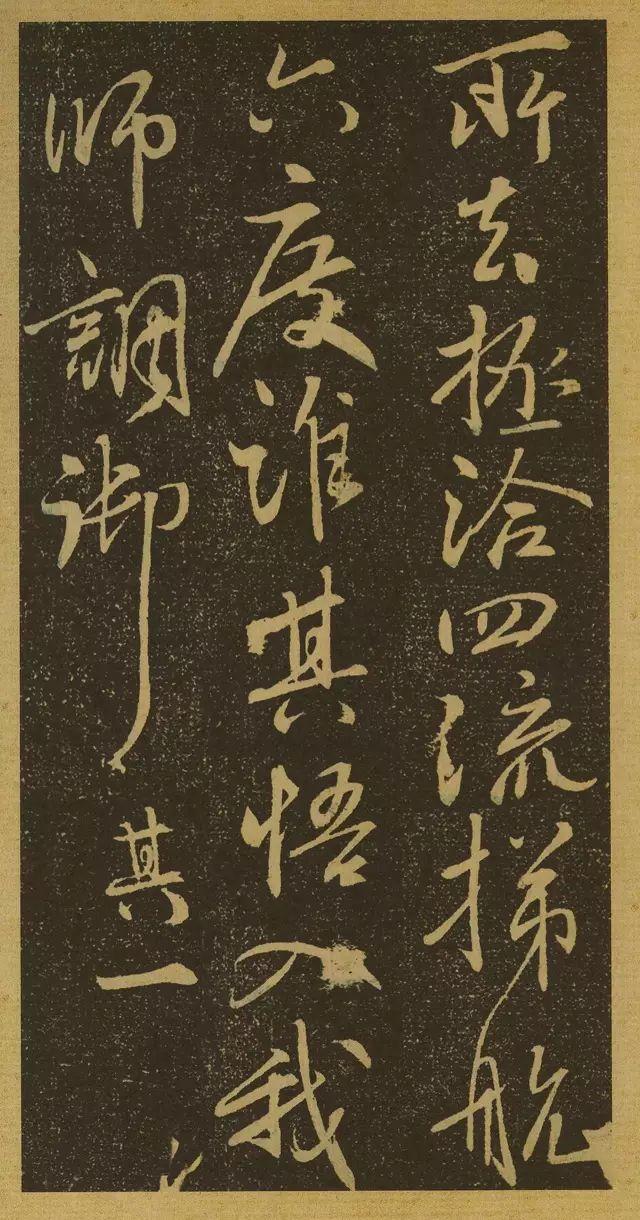 所去拯洽四流梯航
六度誰其悟入我
師調御 其一